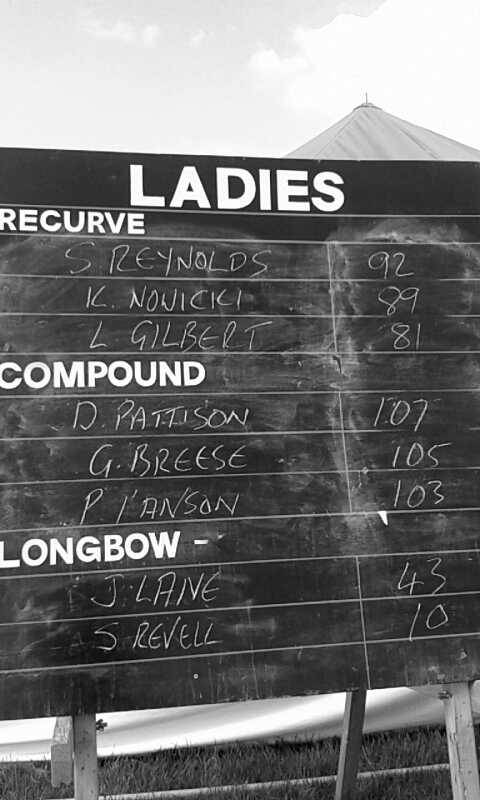 LADIES
RECURVE
S. REYNOLDS 92
K. NOWICKI 89
L. GILBERT 81
COMPOUND
D. PATTISON 107
G. BREESE 105
P. I'ANSON 103
LONGBOW -
J. LANE 43
S. REVELL 10